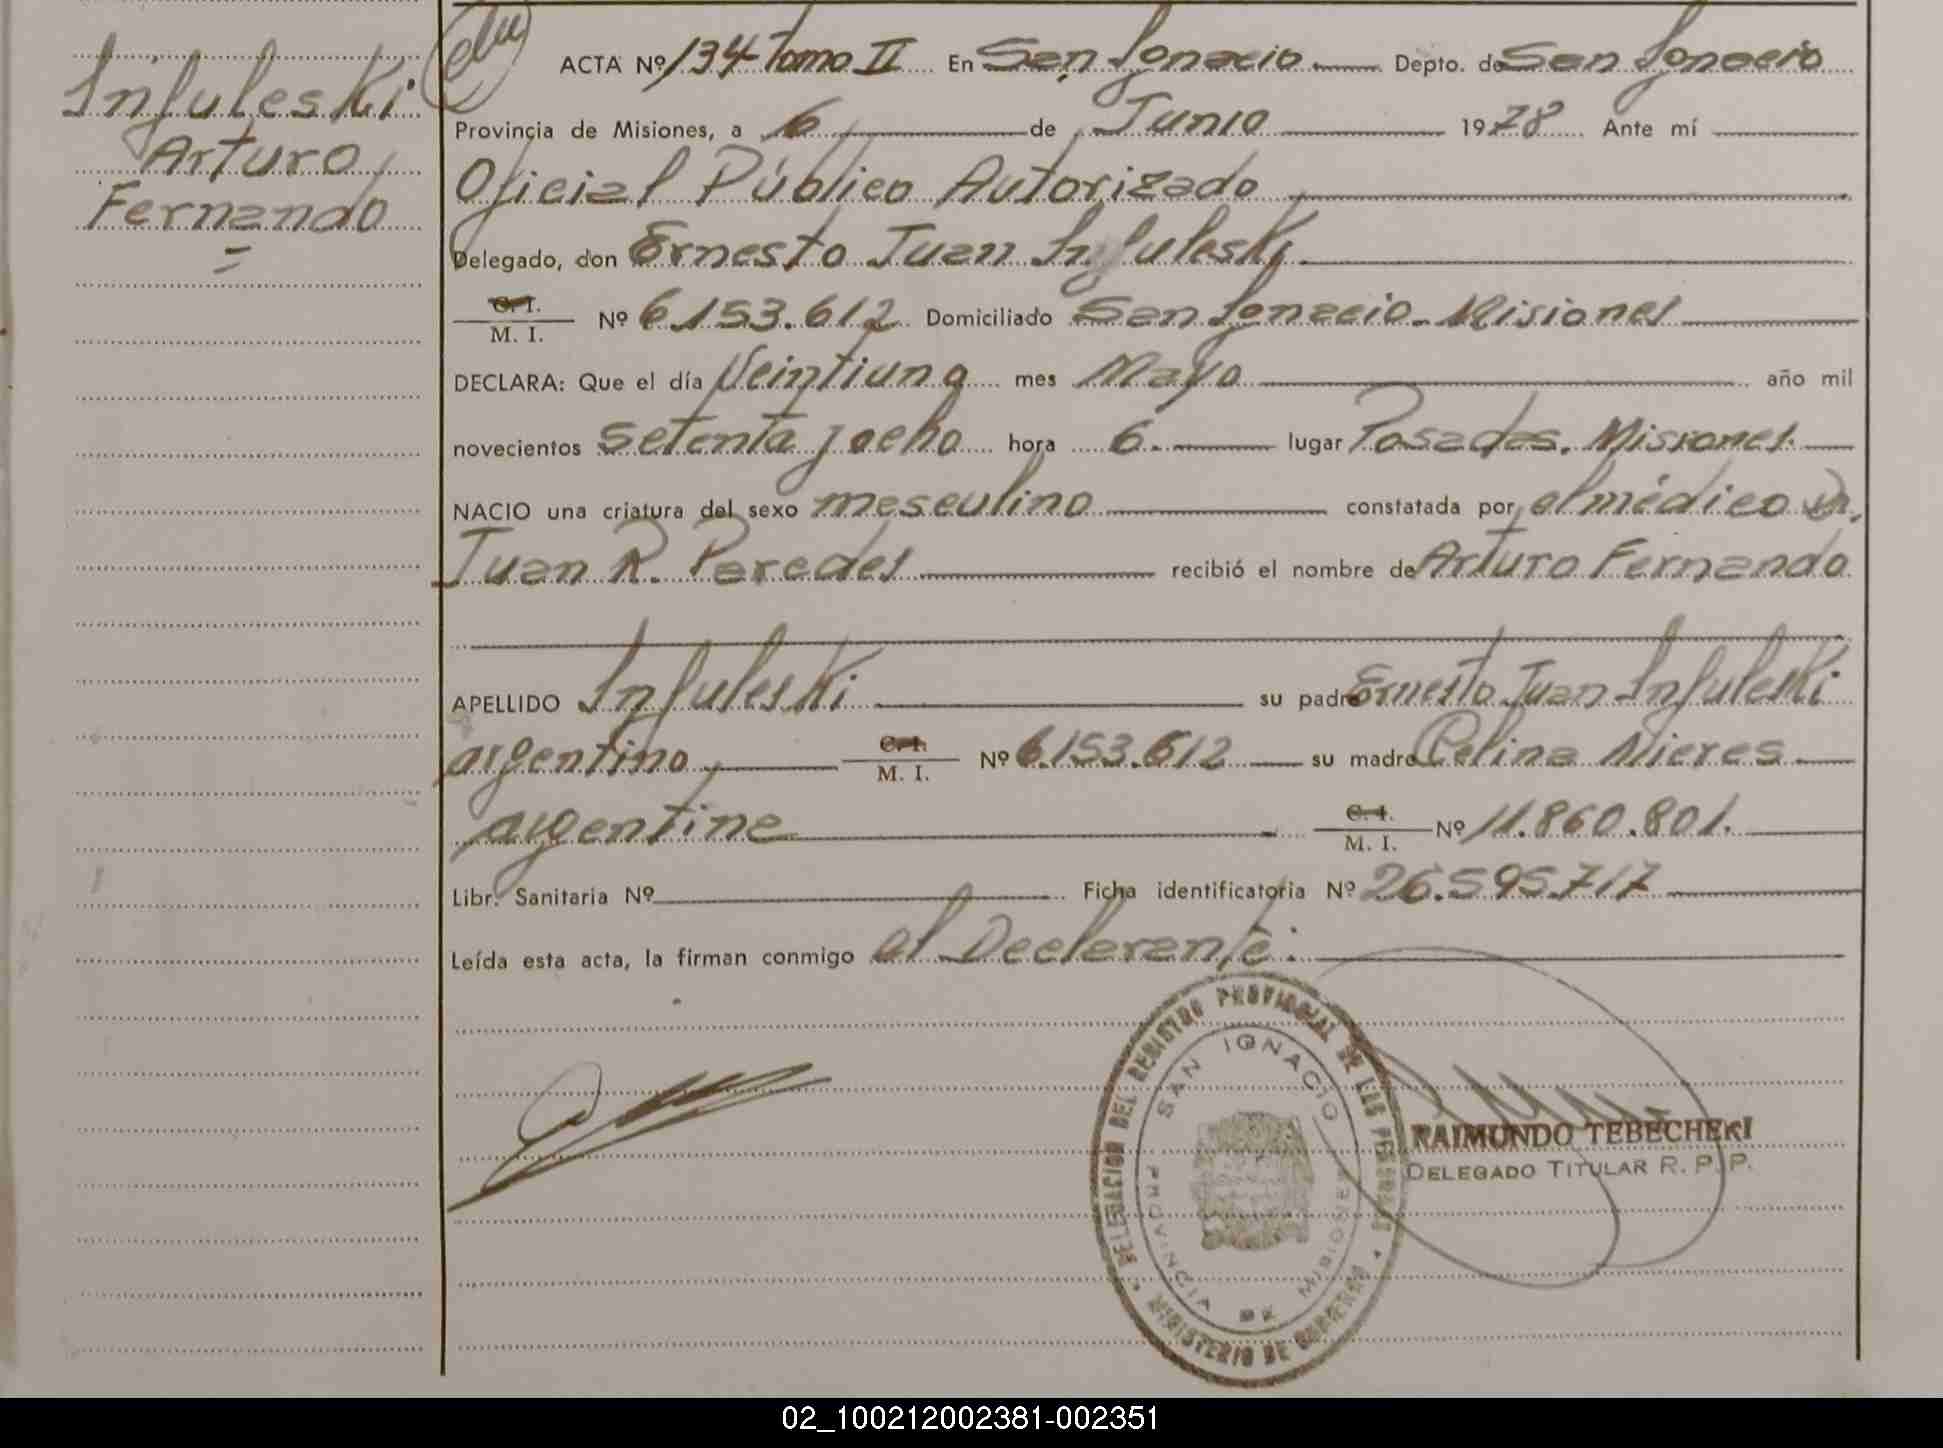 Infuleski
Arturo
Fernando
=
ACTA Nº 134 Tomo II En San Ignacio Depto. de San Ignacio
Provincia de Misiones, a 6 de Junio 1978 Ante mí
Oficial Público Autorizado
Delegado, don Ernesto Juan Infuleski
C. I.
M. I. Nº 6.153.612 Domiciliado San Ignacio - Misiones
DECLARA: Que el día Veintiuno mes Mayo año mil
novecientos setenta y ocho hora 6. lugar Posadas. Misiones.
NACIO una criatura del sexo masculino constatada por el médico Dr.
Juan R. Paredes recibió el nombre de Arturo Fernando
APELLIDO Infuleski su padre Ernesto Juan Infuleski
argentino C. I. M. I. Nº 6.153.612 su madre Celina Mieres
argentina C. I. M. I. Nº 11.860.801.
Libr. Sanitaria Nº Ficha identificatoria Nº 26.595.717
Leída esta acta, la firman conmigo el Declarante:
DELEGACION DEL REGISTRO PROVINCIAL DE LAS PERSONAS
SAN IGNACIO
PROVINCIA DE MISIONES
MINISTERIO DE GOBIERNO
RAIMUNDO TEBECHERI
DELEGADO TITULAR R. P. P.
02_100212002381-002351